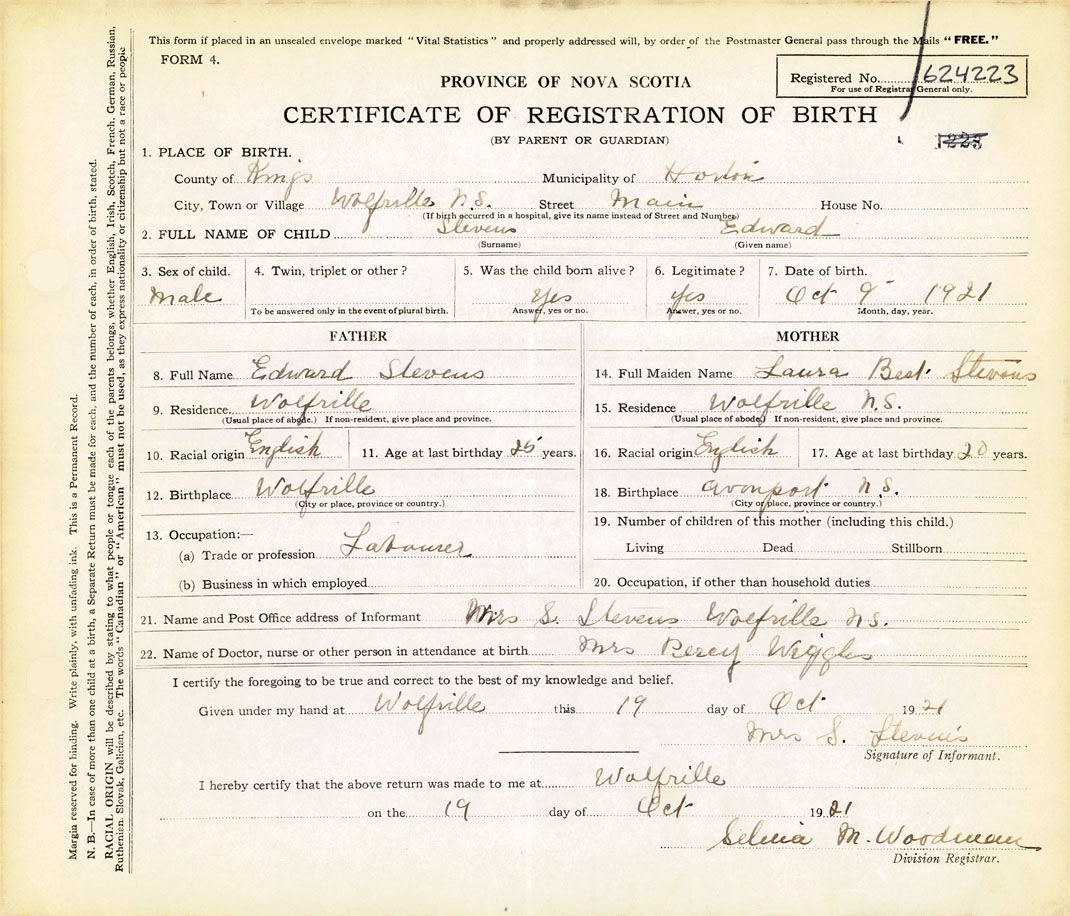 This form if placed in an unsealed envelope marked "Vital Statistics" and properly addressed will, by order of the Postmaster General pass through the Mails "FREE."
FORM 4.
Registered No. 624223
For use of Registrar General only.
PROVINCE OF NOVA SCOTIA
CERTIFICATE OF REGISTRATION OF BIRTH
(BY PARENT OR GUARDIAN)
1. PLACE OF BIRTH.
County of Kings Municipality of Horton
City, Town or Village Wolfville N.S. Street Main House No.
(If birth occurred in a hospital, give its name instead of Street and Number)
2. FULL NAME OF CHILD Stevens Edward
(Surname) (Given name)
3. Sex of child. 4. Twin, triplet or other? 5. Was the child born alive? 6. Legitimate? 7. Date of birth.
Male Yes yes Oct 9 1921
To be answered only in the event of plural birth. Answer, yes or no. Answer, yes or no. Month, day, year.
FATHER MOTHER
8. Full Name Edward Stevens 14. Full Maiden Name Laura Best Stevens
9. Residence Wolfville 15. Residence Wolfville N.S.
(Usual place of abode.) If non-resident, give place and province. (Usual place of abode.) If non-resident, give place and province.
10. Racial origin English 11. Age at last birthday 25 years. 16. Racial origin English 17. Age at last birthday 20 years.
12. Birthplace Wolfville 18. Birthplace Avonport N.S.
(City or place, province or country.) (City or place, province or country.)
13. Occupation:— 19. Number of children of this mother (including this child.)
(a) Trade or profession Labourer Living Dead Stillborn
(b) Business in which employed 20. Occupation, if other than household duties
21. Name and Post Office address of Informant Mrs S. Stevens Wolfville N.S.
22. Name of Doctor, nurse or other person in attendance at birth Mrs Percy
I certify the foregoing to be true and correct to the best of my knowledge and belief.
Given under my hand at Wolfville this 19 day of Oct 1921
Mrs S. Stevens
Signature of Informant.
I hereby certify that the above return was made to me at Wolfville
on the 19 day of Oct 1921
M. Woodman
Division Registrar.
Margin reserved for binding. Write plainly, with unfading ink. This is a Permanent Record.
N. B.—In case of more than one child at a birth, a Separate Return must be made for each, and the number of each, in order of birth, stated.
RACIAL ORIGIN will be described by stating to what people or tongue each of the parents belongs, whether English, Irish, Scotch, French, German, Russian,
Ruthenian, Slovak, Galician, etc. The words "Canadian" or "American" must not be used, as they express nationality or citizenship but not a race or people